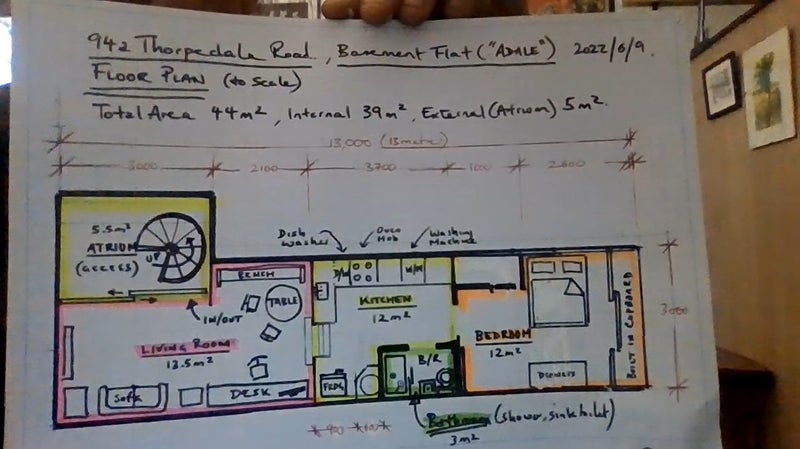 942 Thorpedale Road, Basement Flat ("ADALE") 2022/6/9.
FLOOR PLAN (to scale)
Total Area 44m², Internal 39m², External (Atrium) 5m².
13,000 (13 metre)
3000 2100 3700 2600
5.5m²
ATRIUM
(ACCESS)
UP
Dish
Washer
Oven
Hob
Washing
Machine
BENCH
D/W
W/M
TABLE
IN/OUT
KITCHEN
12m²
LIVING ROOM
13.5m²
BEDROOM
12m²
BUILT IN CUPBOARD
3000
B/R
SOFA
DESK
FRDG
Bathroom (shower, sink toilet)
3m²
900 600